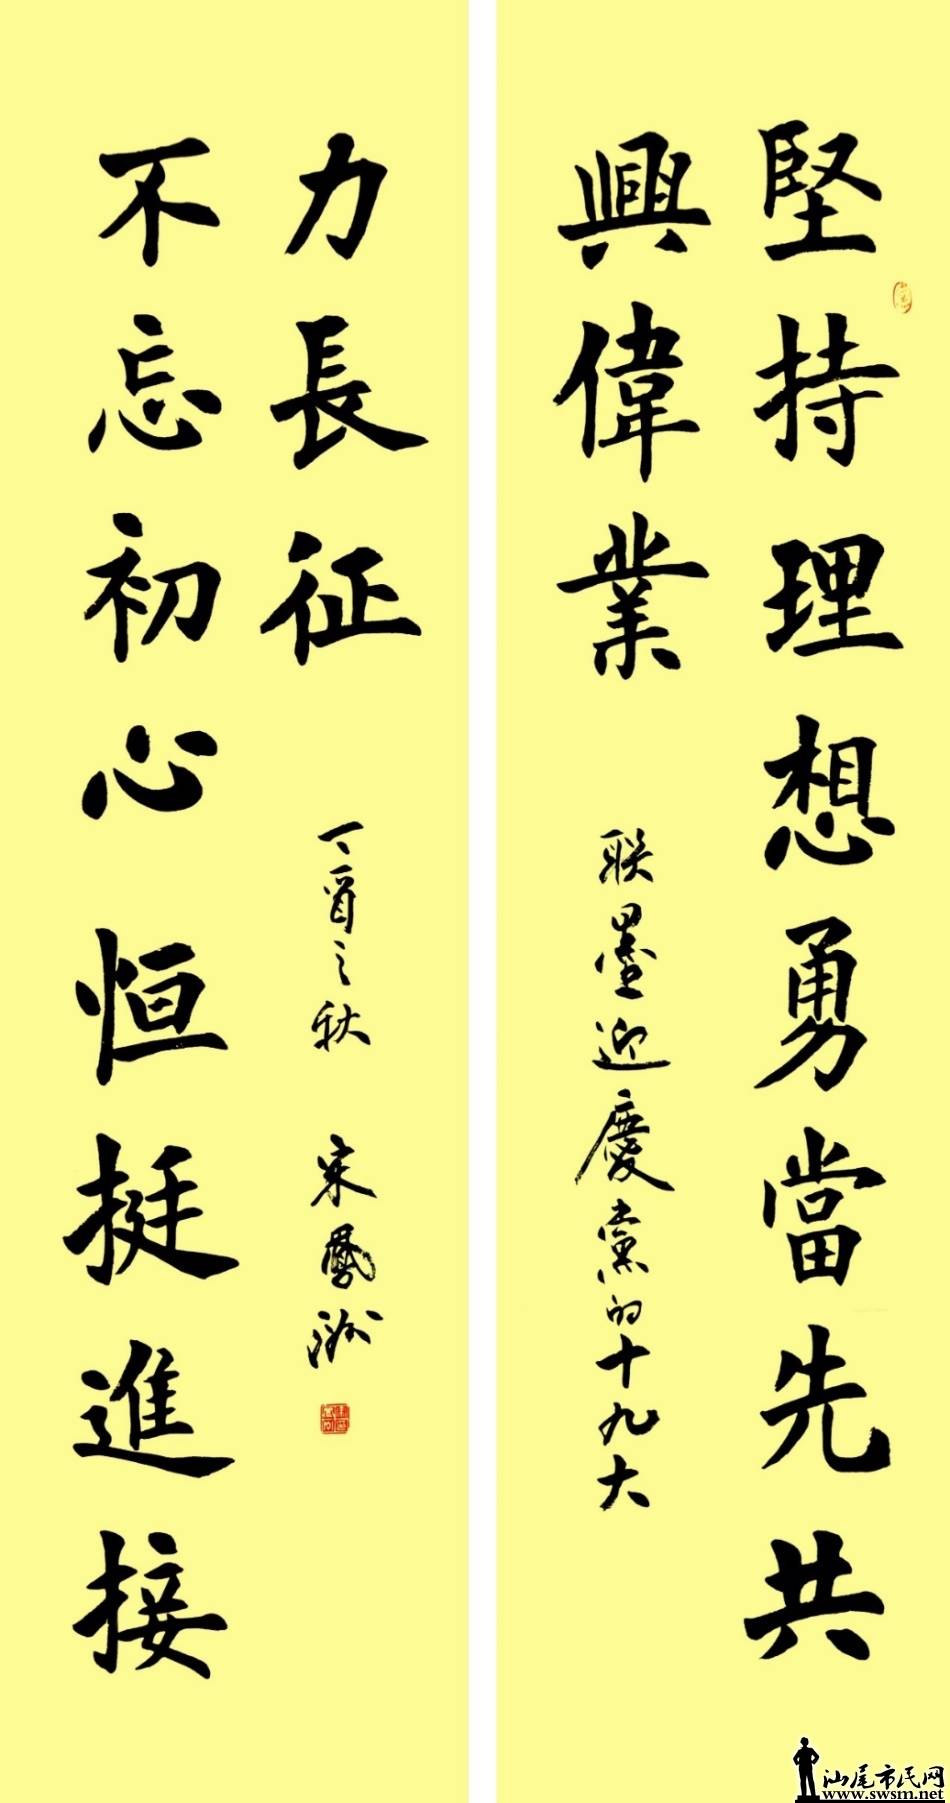 堅持理想勇當先共
興偉業
联墨迎慶党的十九大
不忘初心恒挺進接
力長征
丁酉之秋 宋鳳洲
汕尾市民网
www.swsm.net